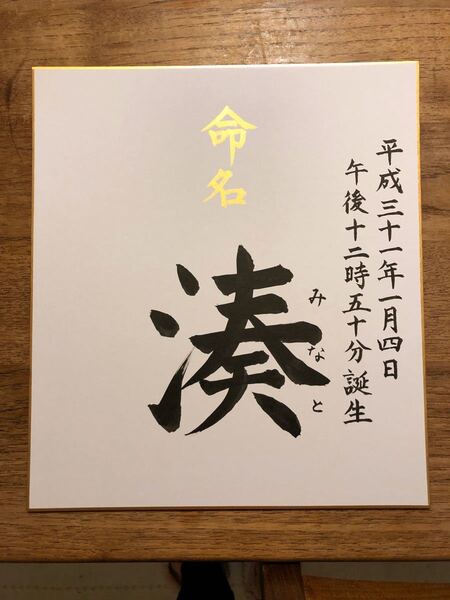 平成三十一年一月四日
午後十二時五十分誕生
命名
湊
みなと